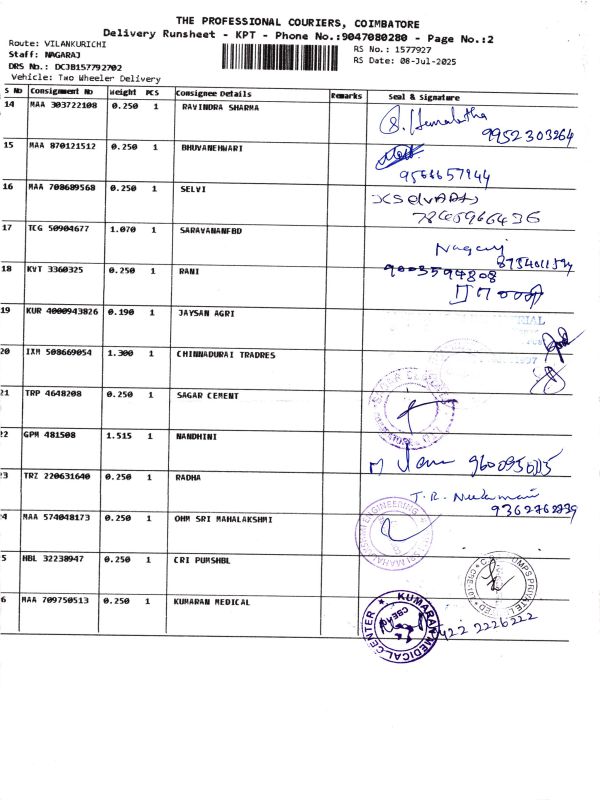 THE PROFESSIONAL COURIERS, COIMBATORE
Delivery Runsheet - KPT - Phone No.:9047080280 - Page No.:2
Route: VILANKURICHI
Staff: NAGARAJ
DRS No.: DCJB157792702
Vehicle: Two Wheeler Delivery
RS No.: 1577927
RS Date: 08-Jul-2025
S No Consignment No Weight PCS Consignee Details Remarks Seal & Signature
14 MAA 303722108 0.250 1 RAVINDRA SHARMA
9952303264
15 MAA 870121512 0.250 1 BHUVANEHWARI
9566657944
16 MAA 708689568 0.250 1 SELVI
17 TCG 50904677 1.070 1 SARAVANANFBD
Nagaraj
18 KVT 3360325 0.250 1 RANI
9003594808
19 KUR 4000943826 0.190 1 JAYSAN AGRI
20 IXM 508669054 1.300 1 CHINNADURAI TRADRES
21 TRP 4648208 0.250 1 SAGAR CEMENT
22 GPM 481508 1.515 1 NANDHINI
23 TRZ 220631640 0.250 1 RADHA
9362762739
4 MAA 574048173 0.250 1 OHM SRI MAHALAKSHMI
5 HBL 32238947 0.250 1 CRI PUMSHBL
6 MAA 709750513 0.250 1 KUMARAN MEDICAL
KUMARAN MEDICAL CENTER
422 2226222